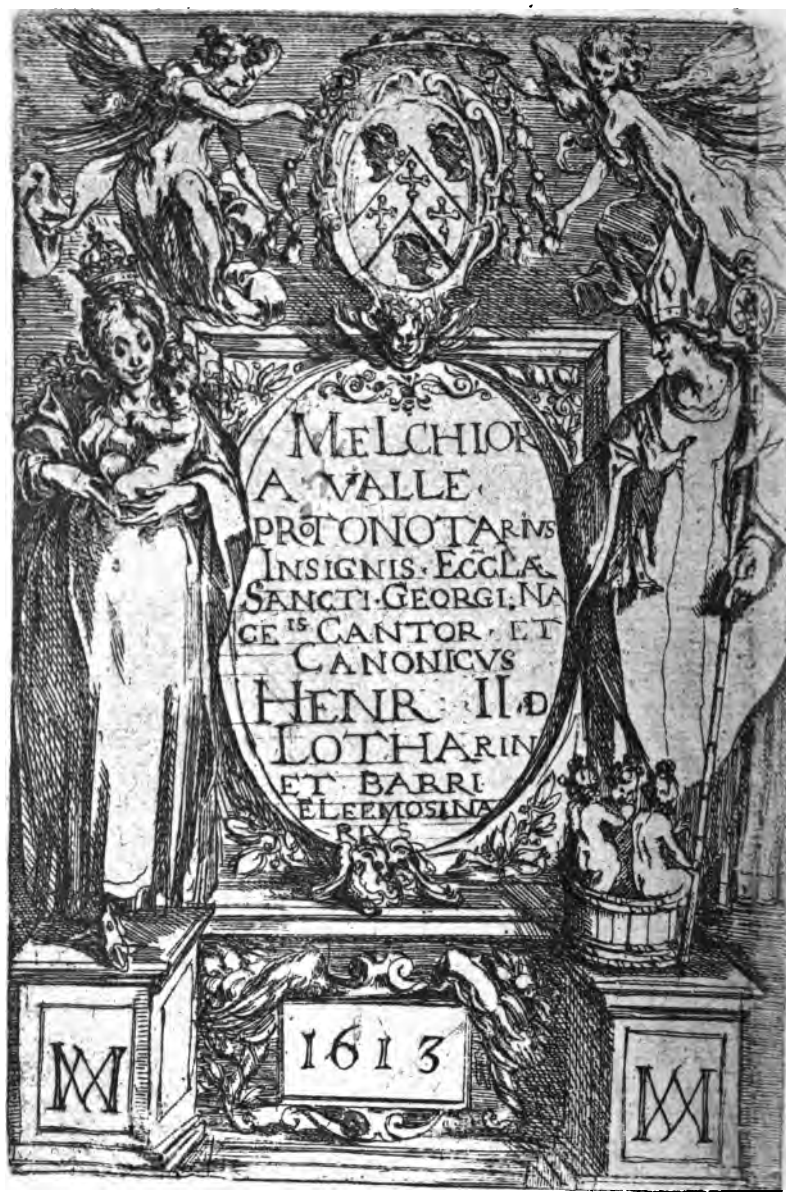 MELCHIOR
A VALLE·
PROTONOTARIVS
INSIGNIS·ECC̃LÆ
SANCTI·GEORGI·NA
CEIS CANTOR· ET
CANONICVS
HENR : II·D
LOTHARIN
ET BARRI·
ELEEMOSINA
RIVS
1613